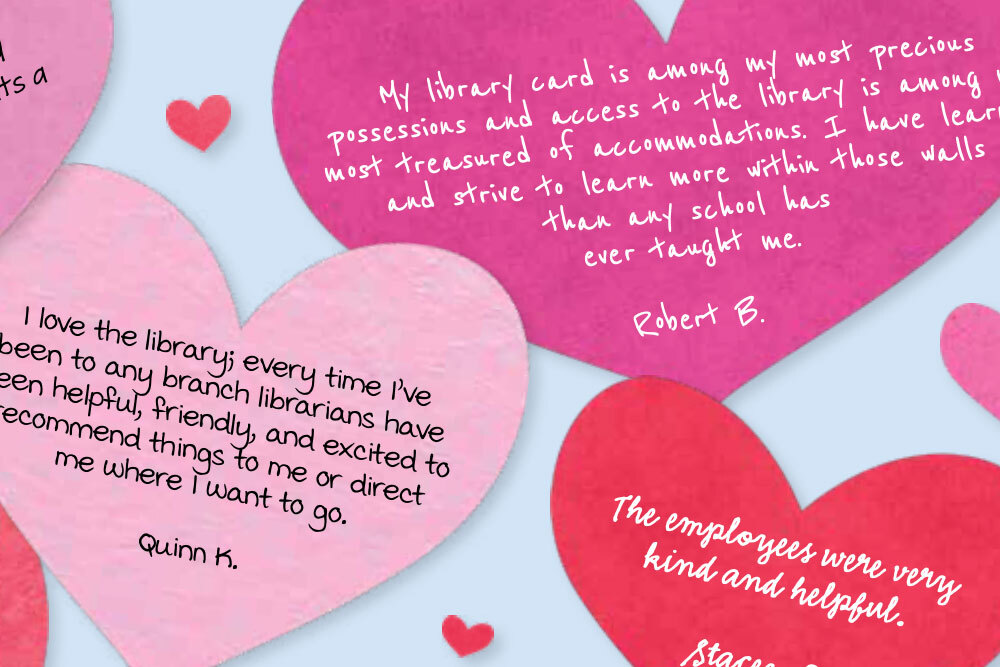 ts a
My library card is among my most precious
possessions and access to the library is among
most treasured of accommodations. I have
and strive to learn more within those walls
than any school has
ever taught me.
Robert B.
I love the library; every time I've
been to any branch librarians have
helpful, friendly, and excited to
recommend things to me or direct
me where I want to go.
Quinn K.
The employees were very
kind and helpful.